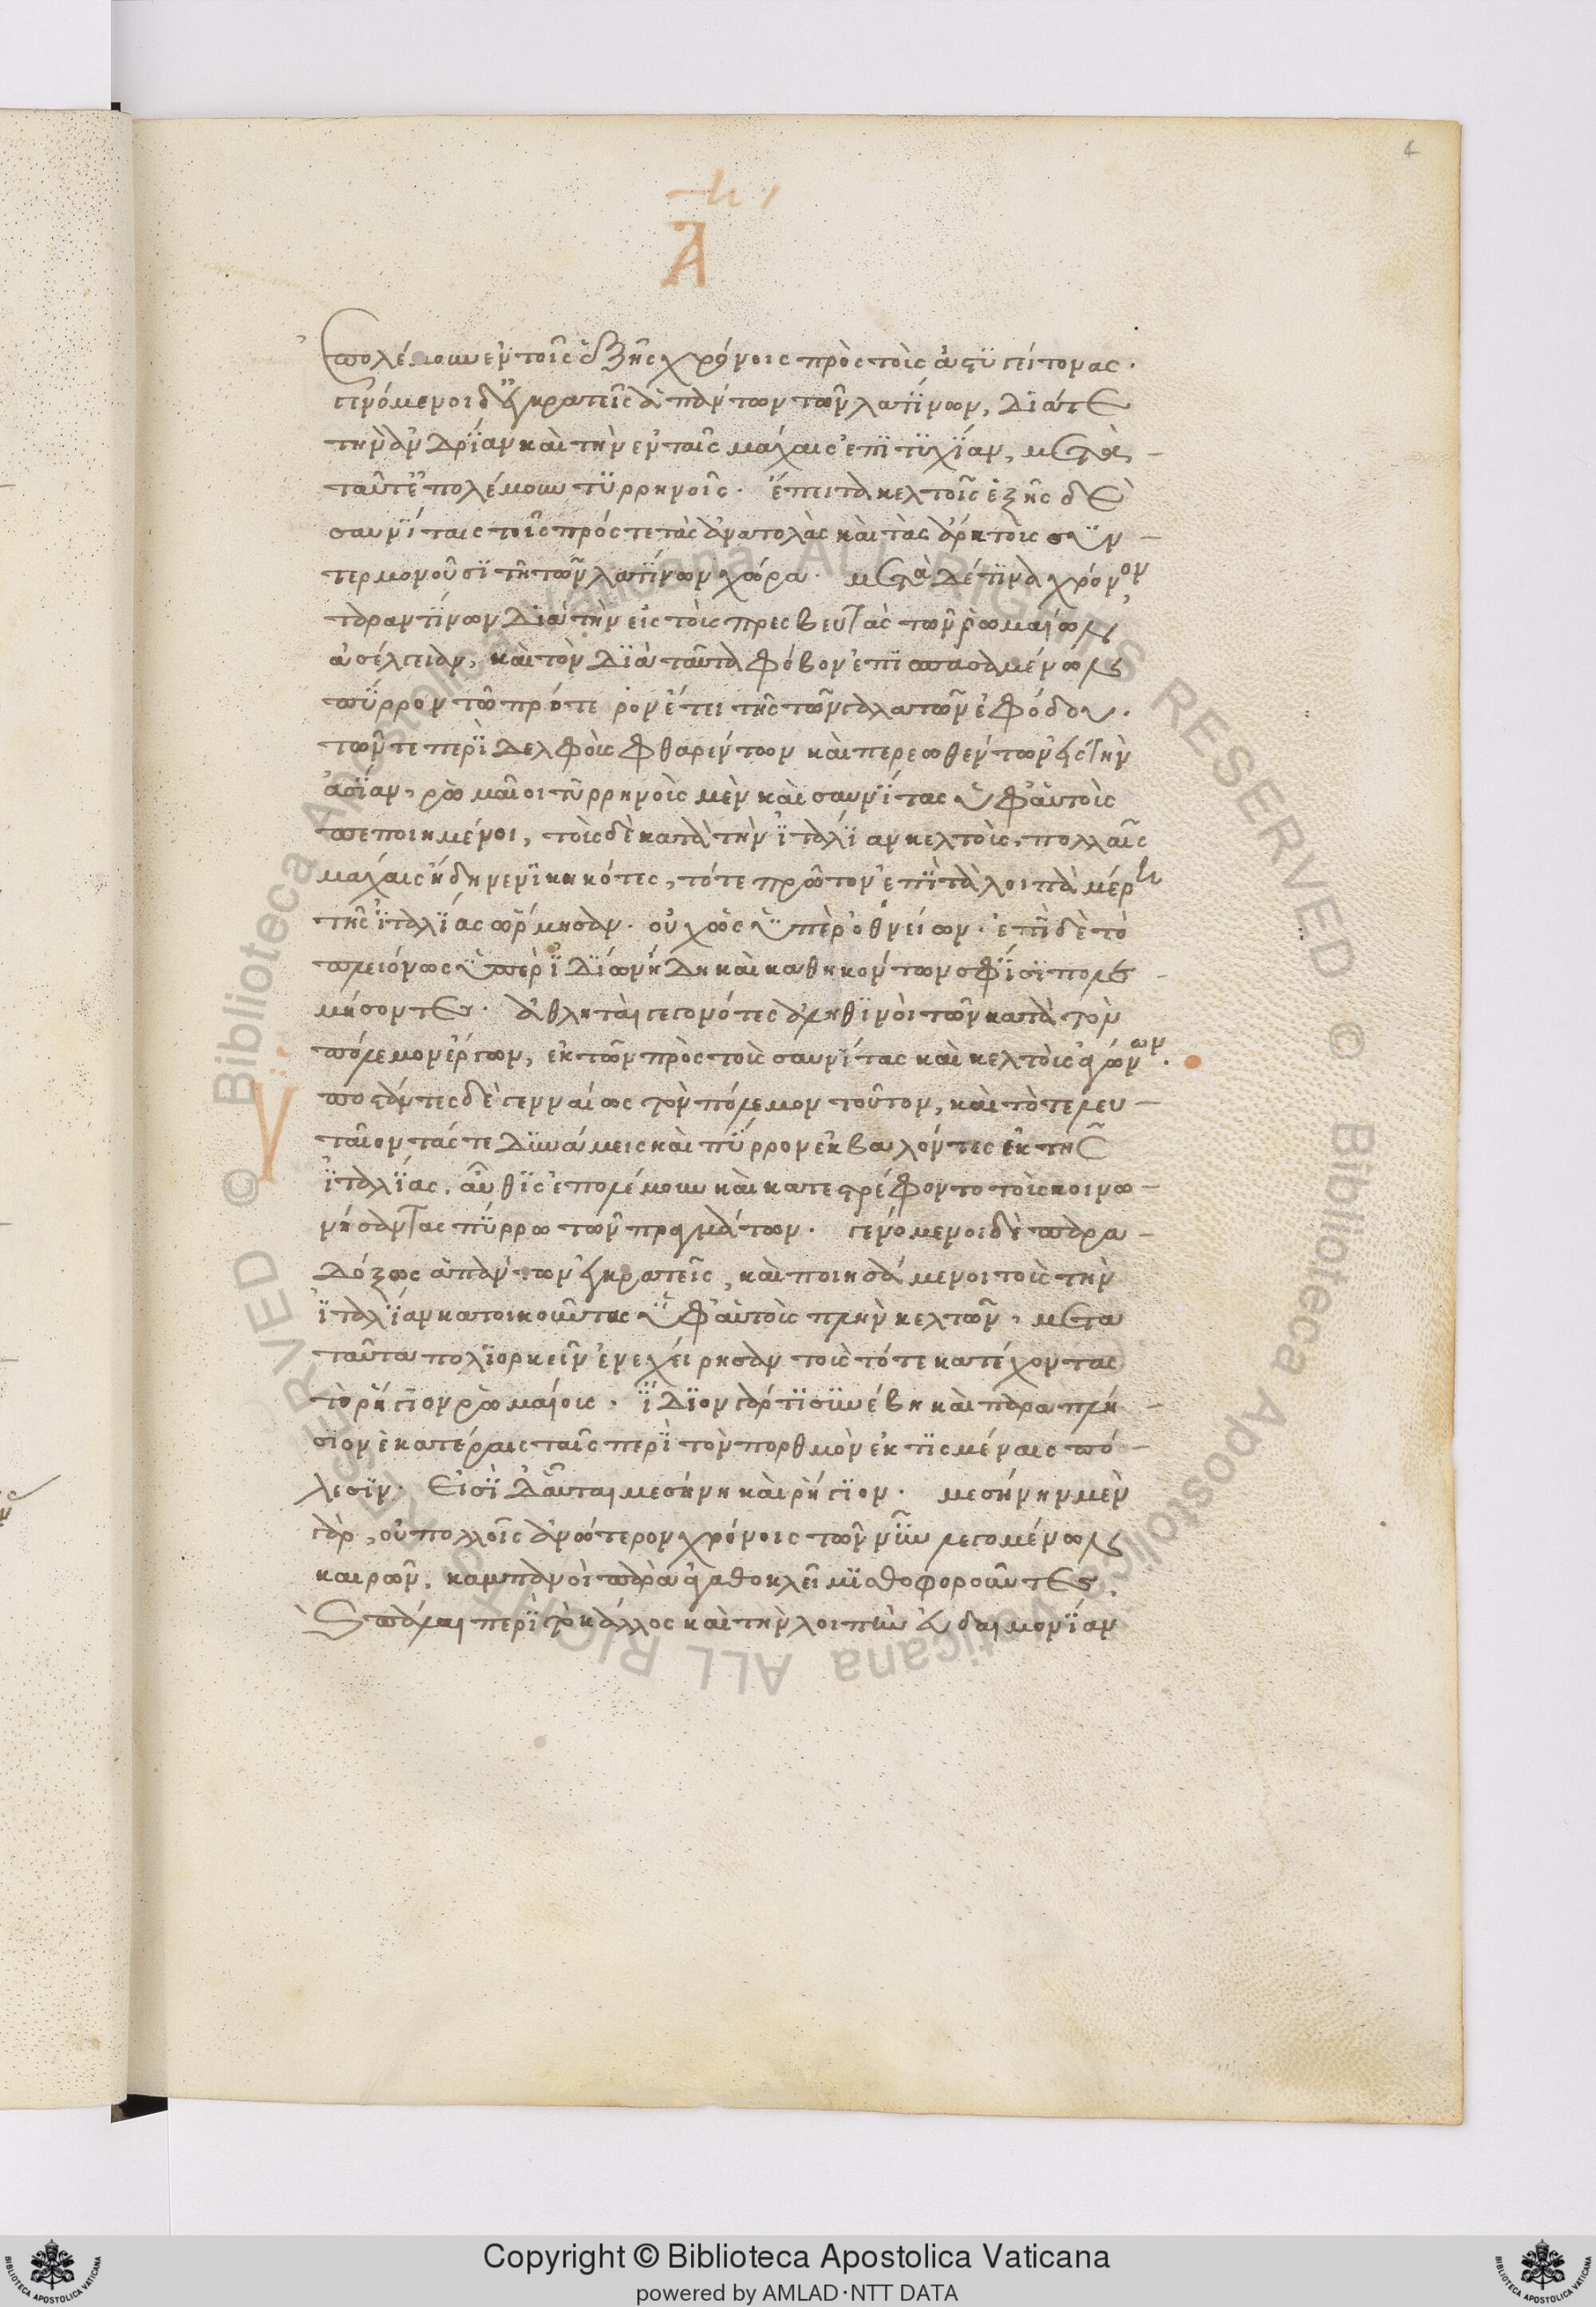 4
Ἱ
Ᾱ
ἐπολέμουν ἐν τοῖς ἑξῆς χρόνοις πρὸς τοὺς ἀστυγείτονας.
γενόμενοι δ' ἐγκρατεῖς ἁπάντων τῶν λατίνων, διά τε
τὴν ἀνδρΐαν καὶ τὴν ἐν ταῖς μάχαις ἐπιτυχΐαν, μετὰ
ταῦτ' ἐπολέμουν τυρρηνοῖς. ἔπειτα κελτοῖς ἑξῆς δὲ
σαυνΐταις τοῖς πρός τε τὰς ἀνατολὰς καὶ τὰς ἄρκτους συν-
τερμονοῦσϊ τῆ τῶν λατΐνων χώρα. μετὰ δέ τινα χρόνον,
ταραντΐνων διὰ τὴν εἰς τοὺς πρεσβευτὰς τῶν ῥωμαίων
ἀσέλγειαν, καὶ τὸν διὰ ταῦτα φόβον ἐπισπασαμένων
πύρρον τῶ πρότερον ἔτει τῆς τῶν γαλατῶν ἐφόδου.
τῶν τε περὶ δελφοὺς φθαρέντων καὶ περεωθέντων εἰς τὴν
ἀσΐαν, ῥωμαῖοι τυρρηνοὺς μὲν καὶ σαυνΐτας ὑφ' αὑτοὺς
πεποιημένοι, τοὺς δὲ κατὰ τὴν ἰταλΐαν κελτοὺς, πολλαῖς
μάχαις ἤδη νενικηκότες, τότε πρῶτον ἐπὶ τὰ λοιπὰ μέρη
τῆς ἰταλΐας ὥρμησαν. οὐχ ὡς ὑπὲρ ὀθνείων. ἐπὶ δὲ τὸ
πλειόνως ὑπὲρ ἰδΐων ἤδη καὶ καθηκόντων σφΐσϊ πολε-
μήσοντες. ἀθληταὶ γεγονότες ἀληθινοὶ τῶν κατὰ τὸν
πόλεμον ἔργων, ἐκ τῶν πρὸς τοὺς σαυνΐτας καὶ κελτοὺς ἀγώνων.
ποστάντες δὲ γενναίως τὸν πόλεμον τοῦτον, καὶ τὸ τελευ-
ταῖον τάς τε δυνάμεις καὶ πύρρον ἐκβαλόντες ἐκ τῆς
ἰταλΐας. αὖθις ἐπολέμουν καὶ κατεστρέφοντο τοὺς κοινω-
νήσαντας πύρρω τῶν πραγμάτων. γενόμενοι δὲ παρα-
δόξως ἁπάντων ἐγκρατεῖς, καὶ ποιησάμενοι τοὺς τὴν
ἰταλΐαν κατοικοῦντας ὑφ' αὑτοὺς πλὴν κελτῶν. μετα
ταῦτα πολιορκεῖν ἐνεχείρησαν τοὺς τότε κατέχοντας
τὸ ῥήγιον ῥωμαίους. ἴδιον γάρ τι συνέβη καὶ παραπλή-
σιον ἑκατέραις ταῖς περὶ τὸν πορθμὸν ἐκτισμέναις πό-
λεσϊν. Εἰσὶ δ' αὗται μεσήνη καὶ ῥήγιον. μεσήνην μὲν
γὰρ, οὐ πολλοῖς ἀνώτερον χρόνοις τῶν νῦν λεγομένων
καιρῶν, καμπανοὶ παρὰ ἀγαθοκλεῖ μισθοφοροῦντες,
ϗ πάλαι περὶ τὸ κάλλος καὶ τὴν λοιπὴν εὐδαιμονΐαν
Copyright © Biblioteca Apostolica Vaticana
powered by AMLAD·NTT DATA